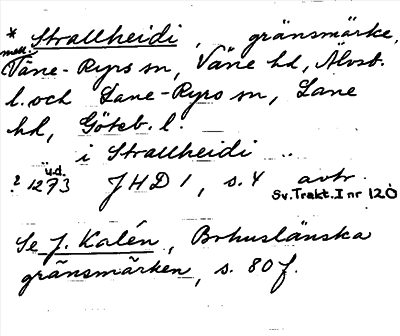 * Strallheidi, gränsmärke,
mell.
Väne-Ryrs sn, Väne hd, Älvsb.
l. och Lane-Ryrs sn, Lane
hd, Göteb. l.
i Strallheidi ..
u.d.
? 1273 JHD 1, s. 4 avtr.
Sv. Trakt. I nr 120
Se J. Kalén, Bohuslänska
gränsmärken, s. 80 f.